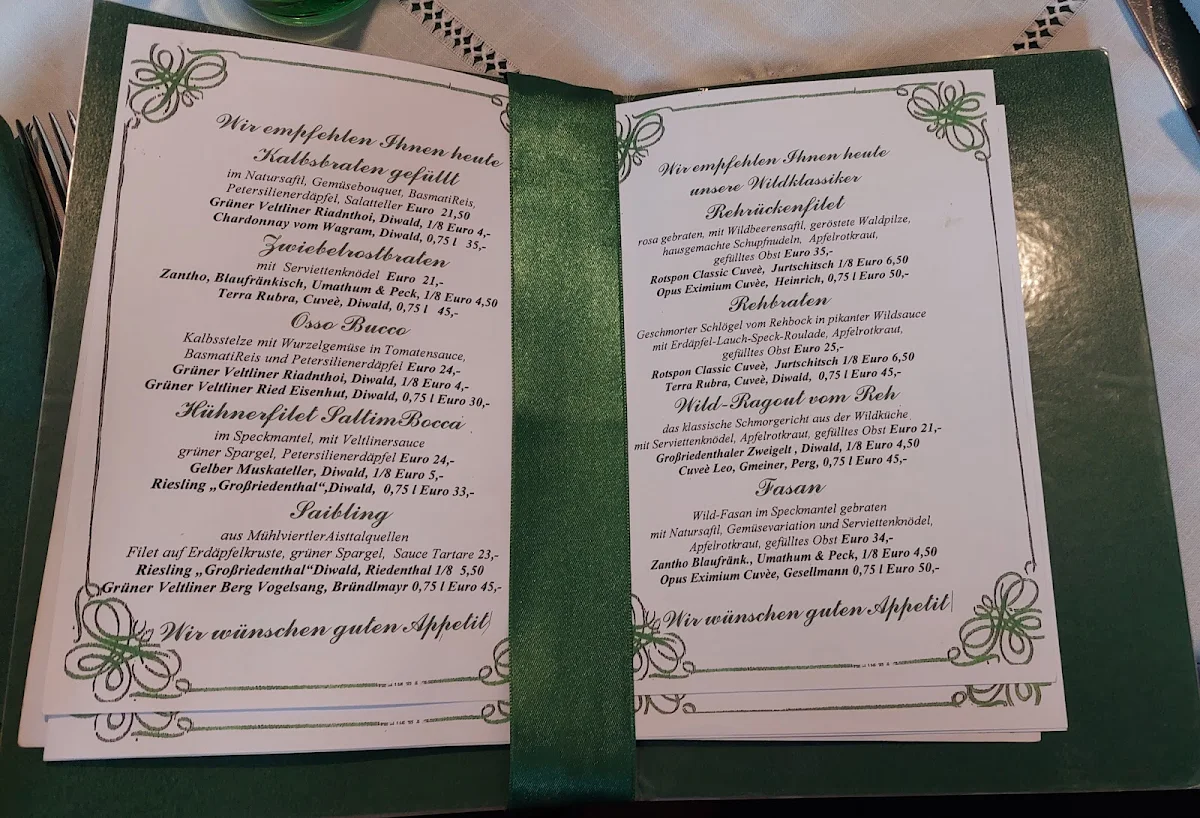 Wir empfehlen Ihnen heute
Kalbsbraten gefüllt
im Natursaftl, Gemüsebouquet, BasmatiReis,
Petersilienerdäpfel, Salatteller Euro 21,50
Grüner Veltliner Riadnthoi, Diwald, 1/8 Euro 4,-
Chardonnay vom Wagram, Diwald, 0,75 l 35,-
Zwiebelrostbraten
mit Serviettenknödel Euro 21,-
Zantho, Blaufränkisch, Umathum & Peck, 1/8 Euro 4,50
Terra Rubra, Cuveè, Diwald, 0,75 l 45,-
Osso Bucco
Kalbsstelze mit Wurzelgemüse in Tomatensauce,
BasmatiReis und Petersilienerdäpfel Euro 24,-
Grüner Veltliner Riadnthoi, Diwald, 1/8 Euro 4,-
Grüner Veltliner Ried Eisenhut, Diwald, 0,75 l Euro 30,-
Hühnerfilet SaltimBocca
im Speckmantel, mit Veltlinersauce
grüner Spargel, Petersilienerdäpfel Euro 24,-
Gelber Muskateller, Diwald, 1/8 Euro 5,-
Riesling „Großriedenthal“,Diwald, 0,75 l Euro 33,-
Saibling
aus MühlviertlerAisttalquellen
Filet auf Erdäpfelkruste, grüner Spargel, Sauce Tartare 23,-
Riesling „Großriedenthal“Diwald, Riedenthal 1/8 5,50
Grüner Veltliner Berg Vogelsang, Bründlmayr 0,75 l Euro 45,-
Wir wünschen guten Appetit
Wir empfehlen Ihnen heute
unsere Wildklassiker
Rehrückenfilet
rosa gebraten, mit Wildbeerensaftl, geröstete Waldpilze,
hausgemachte Schupfnudeln, Apfelrotkraut,
gefülltes Obst Euro 35,-
Rotspon Classic Cuveè, Jurtschitsch 1/8 Euro 6,50
Opus Eximium Cuvèe, Heinrich, 0,75 l Euro 50,-
Rehbraten
Geschmorter Schlögel vom Rehbock in pikanter Wildsauce
mit Erdäpfel-Lauch-Speck-Roulade, Apfelrotkraut,
gefülltes Obst Euro 25,-
Rotspon Classic Cuveè, Jurtschitsch 1/8 Euro 6,50
Terra Rubra, Cuveè, Diwald, 0,75 l Euro 45,-
Wild-Ragout vom Reh
das klassische Schmorgericht aus der Wildküche
mit Serviettenknödel, Apfelrotkraut, gefülltes Obst Euro 21,-
Großriedenthaler Zweigelt , Diwald, 1/8 Euro 4,50
Cuveè Leo, Gmeiner, Perg, 0,75 l Euro 45,-
Fasan
Wild-Fasan im Speckmantel gebraten
mit Natursaftl, Gemüsevariation und Serviettenknödel,
Apfelrotkraut, gefülltes Obst Euro 34,-
Zantho Blaufränk., Umathum & Peck, 1/8 Euro 4,50
Opus Eximium Cuvèe, Gesellmann 0,75 l Euro 50,-
Wir wünschen guten Appetit